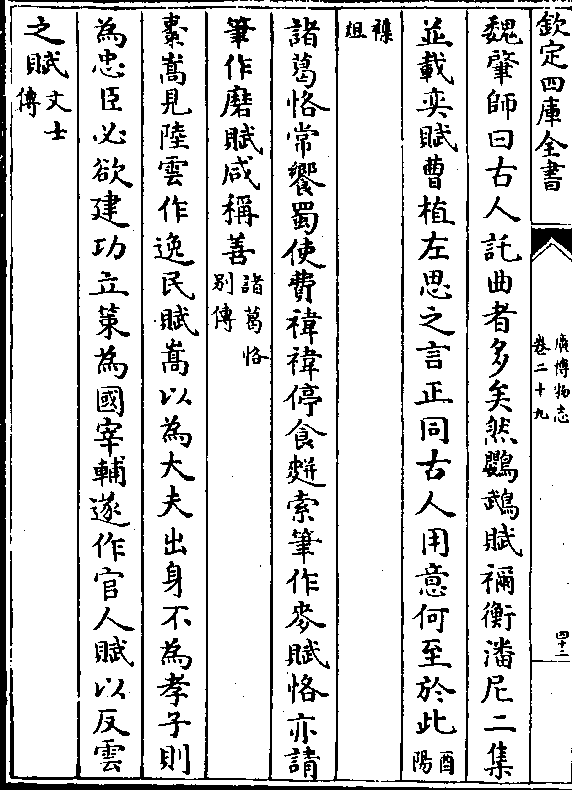 欽定四庫全書
廣博物志
卷二十九
四十三
魏肇師曰古人託曲者多矣然鸚鵡賦禰衡潘尼二集
並載奕賦曹植左思之言正同古人用意何至於此酉陽
雜俎
諸葛恪常饗蜀使費禕禕停食䴵索筆作麥賦恪亦請
筆作磨賦咸稱善諸葛恪別傳
棗嵩見陸雲作逸民賦嵩以為大夫出身不為孝子則
為忠臣必欲建功立策為國宰輔遂作官人賦以反雲
之賦文士傳